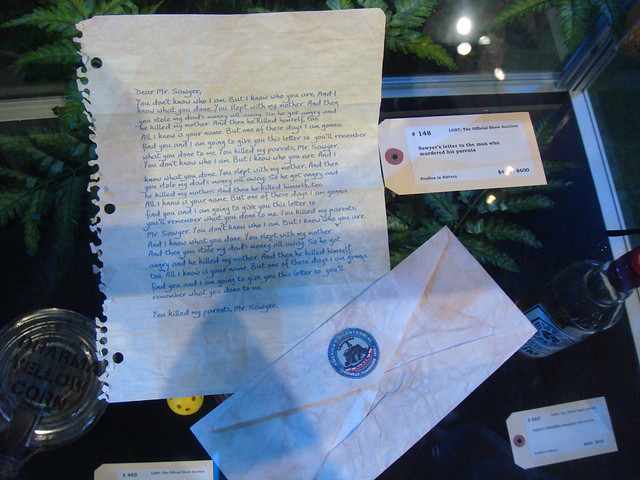 Dear Mr. Sawyer,
You don't know who I am. But I know who you are. And I
know what you done. You slept with my mother. And then
you stole my dad's money all away. So he got angry and
he killed my mother. And then he killed himself, too.
All I know is your name. But one of these days I am gonna
find you and I am going to give you this letter so you'll remember
what you done to me. You killed my parents, Mr. Sawyer
You don't know who I am. But I know who you are. And I
know what you done. You slept with my mother. And then
you stole my dad's money all away. So he got angry and
he killed my mother. And then he killed himself, too.
All I know is your name. But one of these days I am gonna
find you and I am going to give you this letter so
you'll remember what you done to me. You killed my parents,
Mr. Sawyer. You don't know who I am. But I know who you are.
And I know what you done. You slept with my mother
And then you stole my dad's money all away. So he got
angry and he killed my mother. And then he killed himself
too. All I know is your name. But one of these days I am gonna
find you and I am going to give you this letter so you'll
remember what you done to me.
You killed my parents, Mr. Sawyer.
# 148 LOST: The Official Show Auction
Sawyer's letter to the man who
murdered his parents
Profiles in History $600
BICENTENNIAL
DHARMA
YELLOW
CORN
# 485 LOST: The Official Show Auction